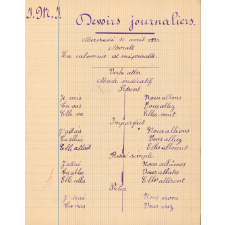 J. M. J.
Devoirs journaliers.
Mercredi
Morale
La calomnie et
Verbe aller
Mode indicatif
Présent
Je vais Nous allons
Tu vas Vous allez
Elle va Elles vont
Imparfait
J'allais Nous allions
Tu allais Vous alliez
Elle allait Elles allaient
Passé simple
J'allai Nous allâmes
Tu allas Vous allâtes
Elle alla Elles allèrent
Futur
J'irai Nous irons
Tu iras Vous irez